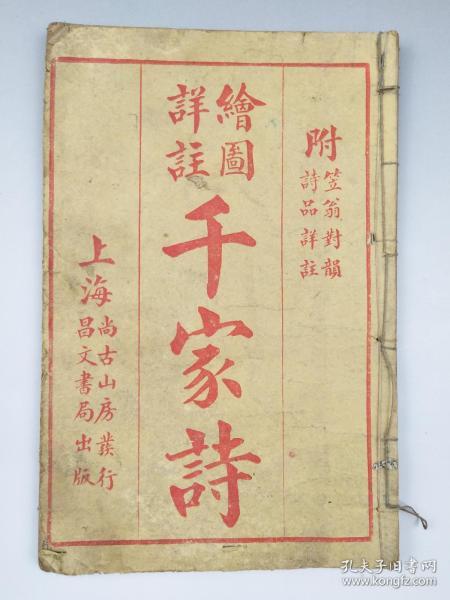 附
笠翁對韻
詩品詳註
繪圖
詳註
千家詩
上海
尚古山房發行
昌文書局出版
孔夫子旧书网
www.kongfz.com